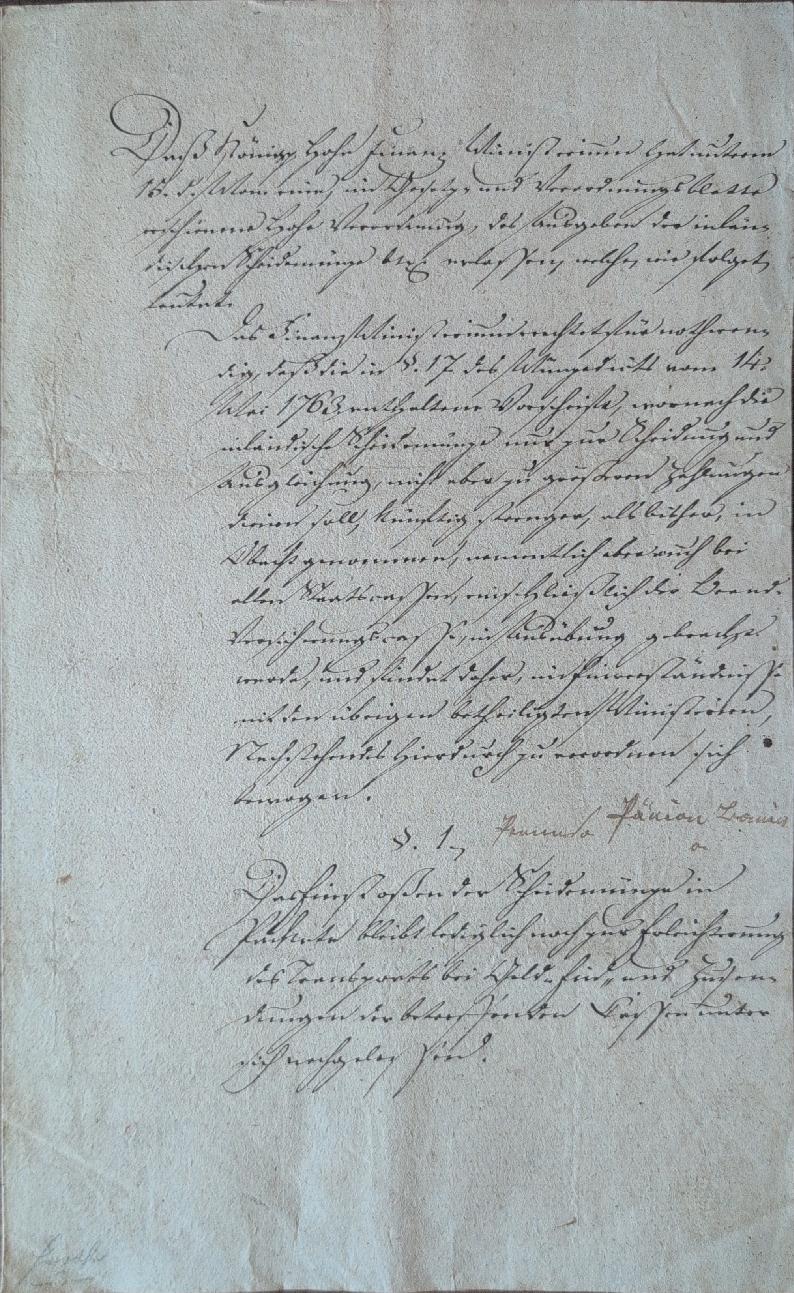 Daß Königl. Hohe Finanz Ministerium hat unterm
15. d. Mon. eine, im Gesetz- und Verordnungsblatte
erschienene Hohe Verordnung, das Ausgeben der inlän-
dischen Scheidemünze betr. erlassen, welche, wie folget,
lautet:
Das Finanz Ministerium erachtet für nothwen-
dig, daß die in §. 17 des Münzedicts vom 14.
Mai 1763 enthaltene Vorschrift, wornach die
inländische Scheidemünze nur zur Scheidung und
Ausgleichung, nicht aber zu größeren Zahlungen
dienen soll, künftig strenger, als bisher, in
Obacht genommen, namentlich aber auch bei
allen Staatscassen, einschließlich der Brand-
versicherungscasse, in Ausübung gebracht
werde, und findet daher, im Einverständnisse
mit den übrigen betheiligten Ministerien,
Nachstehendes hierdurch zu verordnen sich
bewogen.
§. 1.
Das Einstoßen der Scheidemünze in
Packete bleibt lediglich noch zur Erleichterung
des Transports bei Geld-Ein- und Zusen-
dungen der betreffenden Cassen unter
sich nachgelassen.